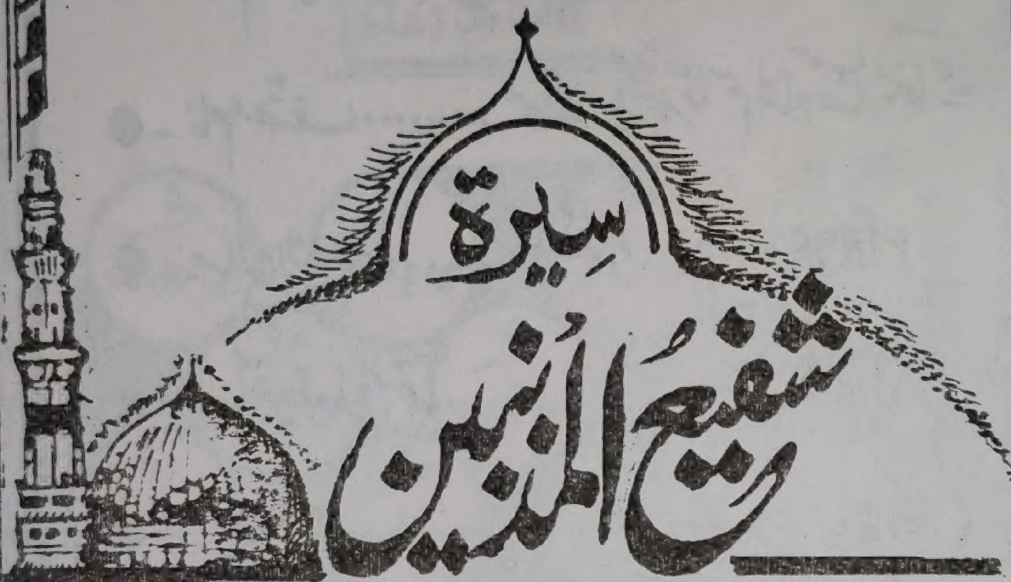 سِيرة
شفيعُ المذنبين